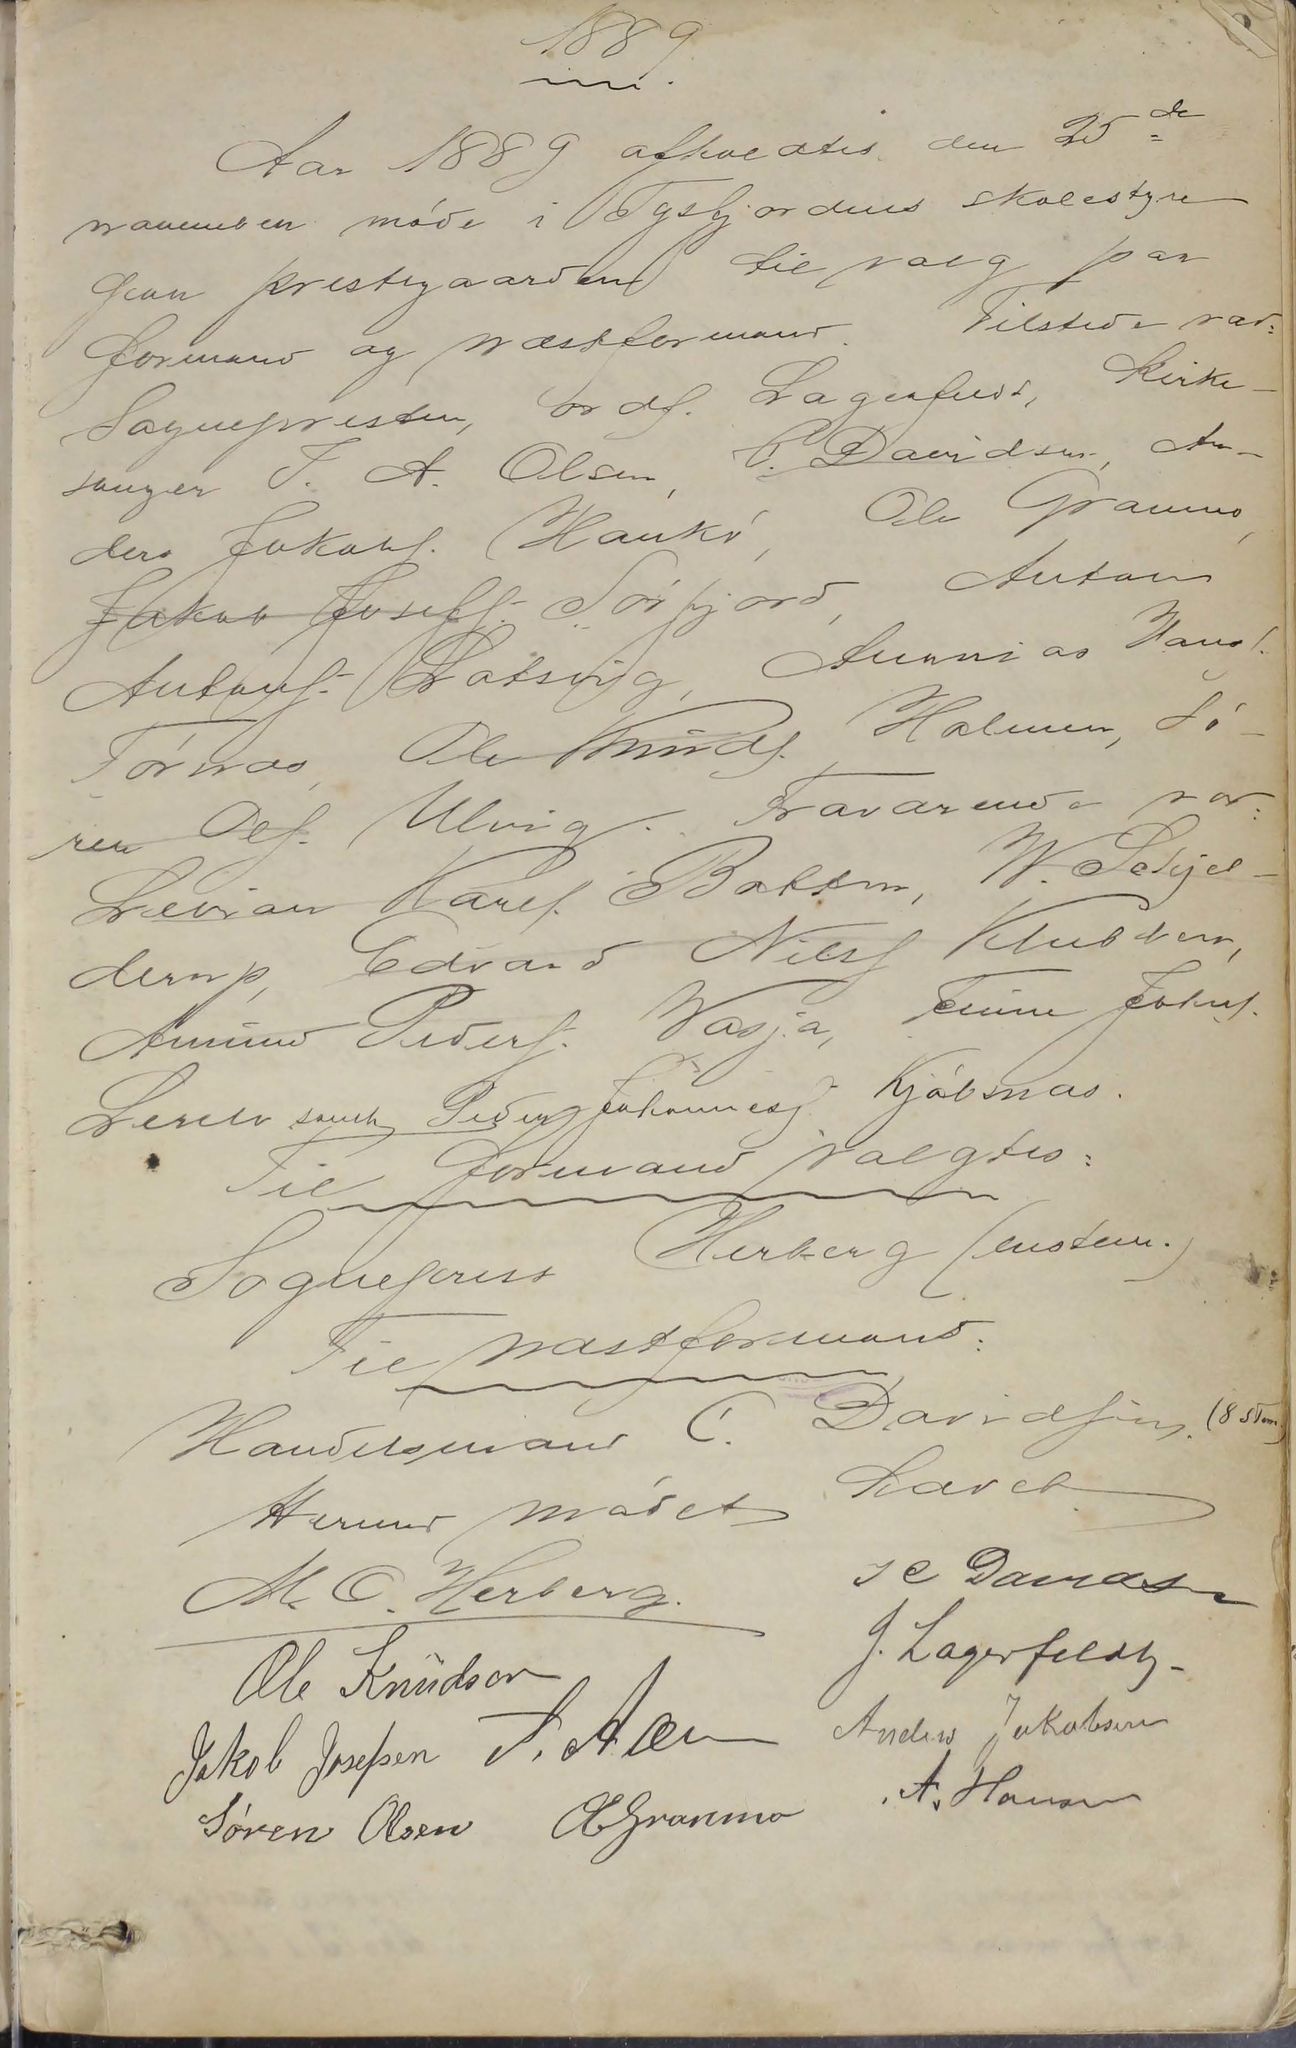 1889
Aar 1889 afholdtes den 25de
november möde i Tysfjordens skolestyre
paa prestegaarden til valg paa
formand og næstformand. Tilstede var:
Sognepresten, ordf. Lagerfeldt, kirke-
sanger F. A. Olsen, C. Davidsen, An-
ders Jakobs. Haukö, Ole Granmo,
Jakob Josefs. Sörfjord, Anton
Antons. Lotsvig, Ananias Hans.
Törnæs, Ole Knuds. Holmen, Sö-
ren Ols. Ulvig. Fraværende var:
Levian Karls. Botten, W. Schjel-
derup, Edvard Nils. Klubben,
Amund Peders. Vasja, Johs.
samt Peder Johannes. Kjöbsnæs.
Til formand valgtes:
Sogneprest Herberg (enstem.)
Til næstformand:
Handelsmand C. Davidsen. (8 stem)
Hermed mödet hævet
M. C. Herberg. C Davidsen
Ole Knüdsen J. Lagerfeldt
Jakob Josefsen F. A. Olsen Anders Jakobsen
Søren Olsen O Granmo A. Hansen